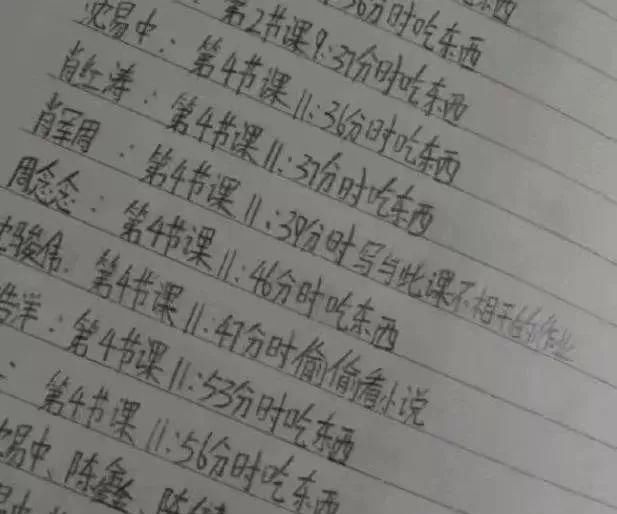 56分时吃东西
第2节课9:37分时吃东西
沈易中:第4节课11:36分时吃东西
肖红涛:第4节课11:37分时吃东西
肖军周:第4节课11:39分时写与此课不相干的作业
周念念:第4节课11:46分时吃东西
骏伟:第4节课11:47分时偷偷看小说
浩洋:第4节课11:53分时吃东西
:第4节课11:56分时吃东西
易中、陈鑫、陈